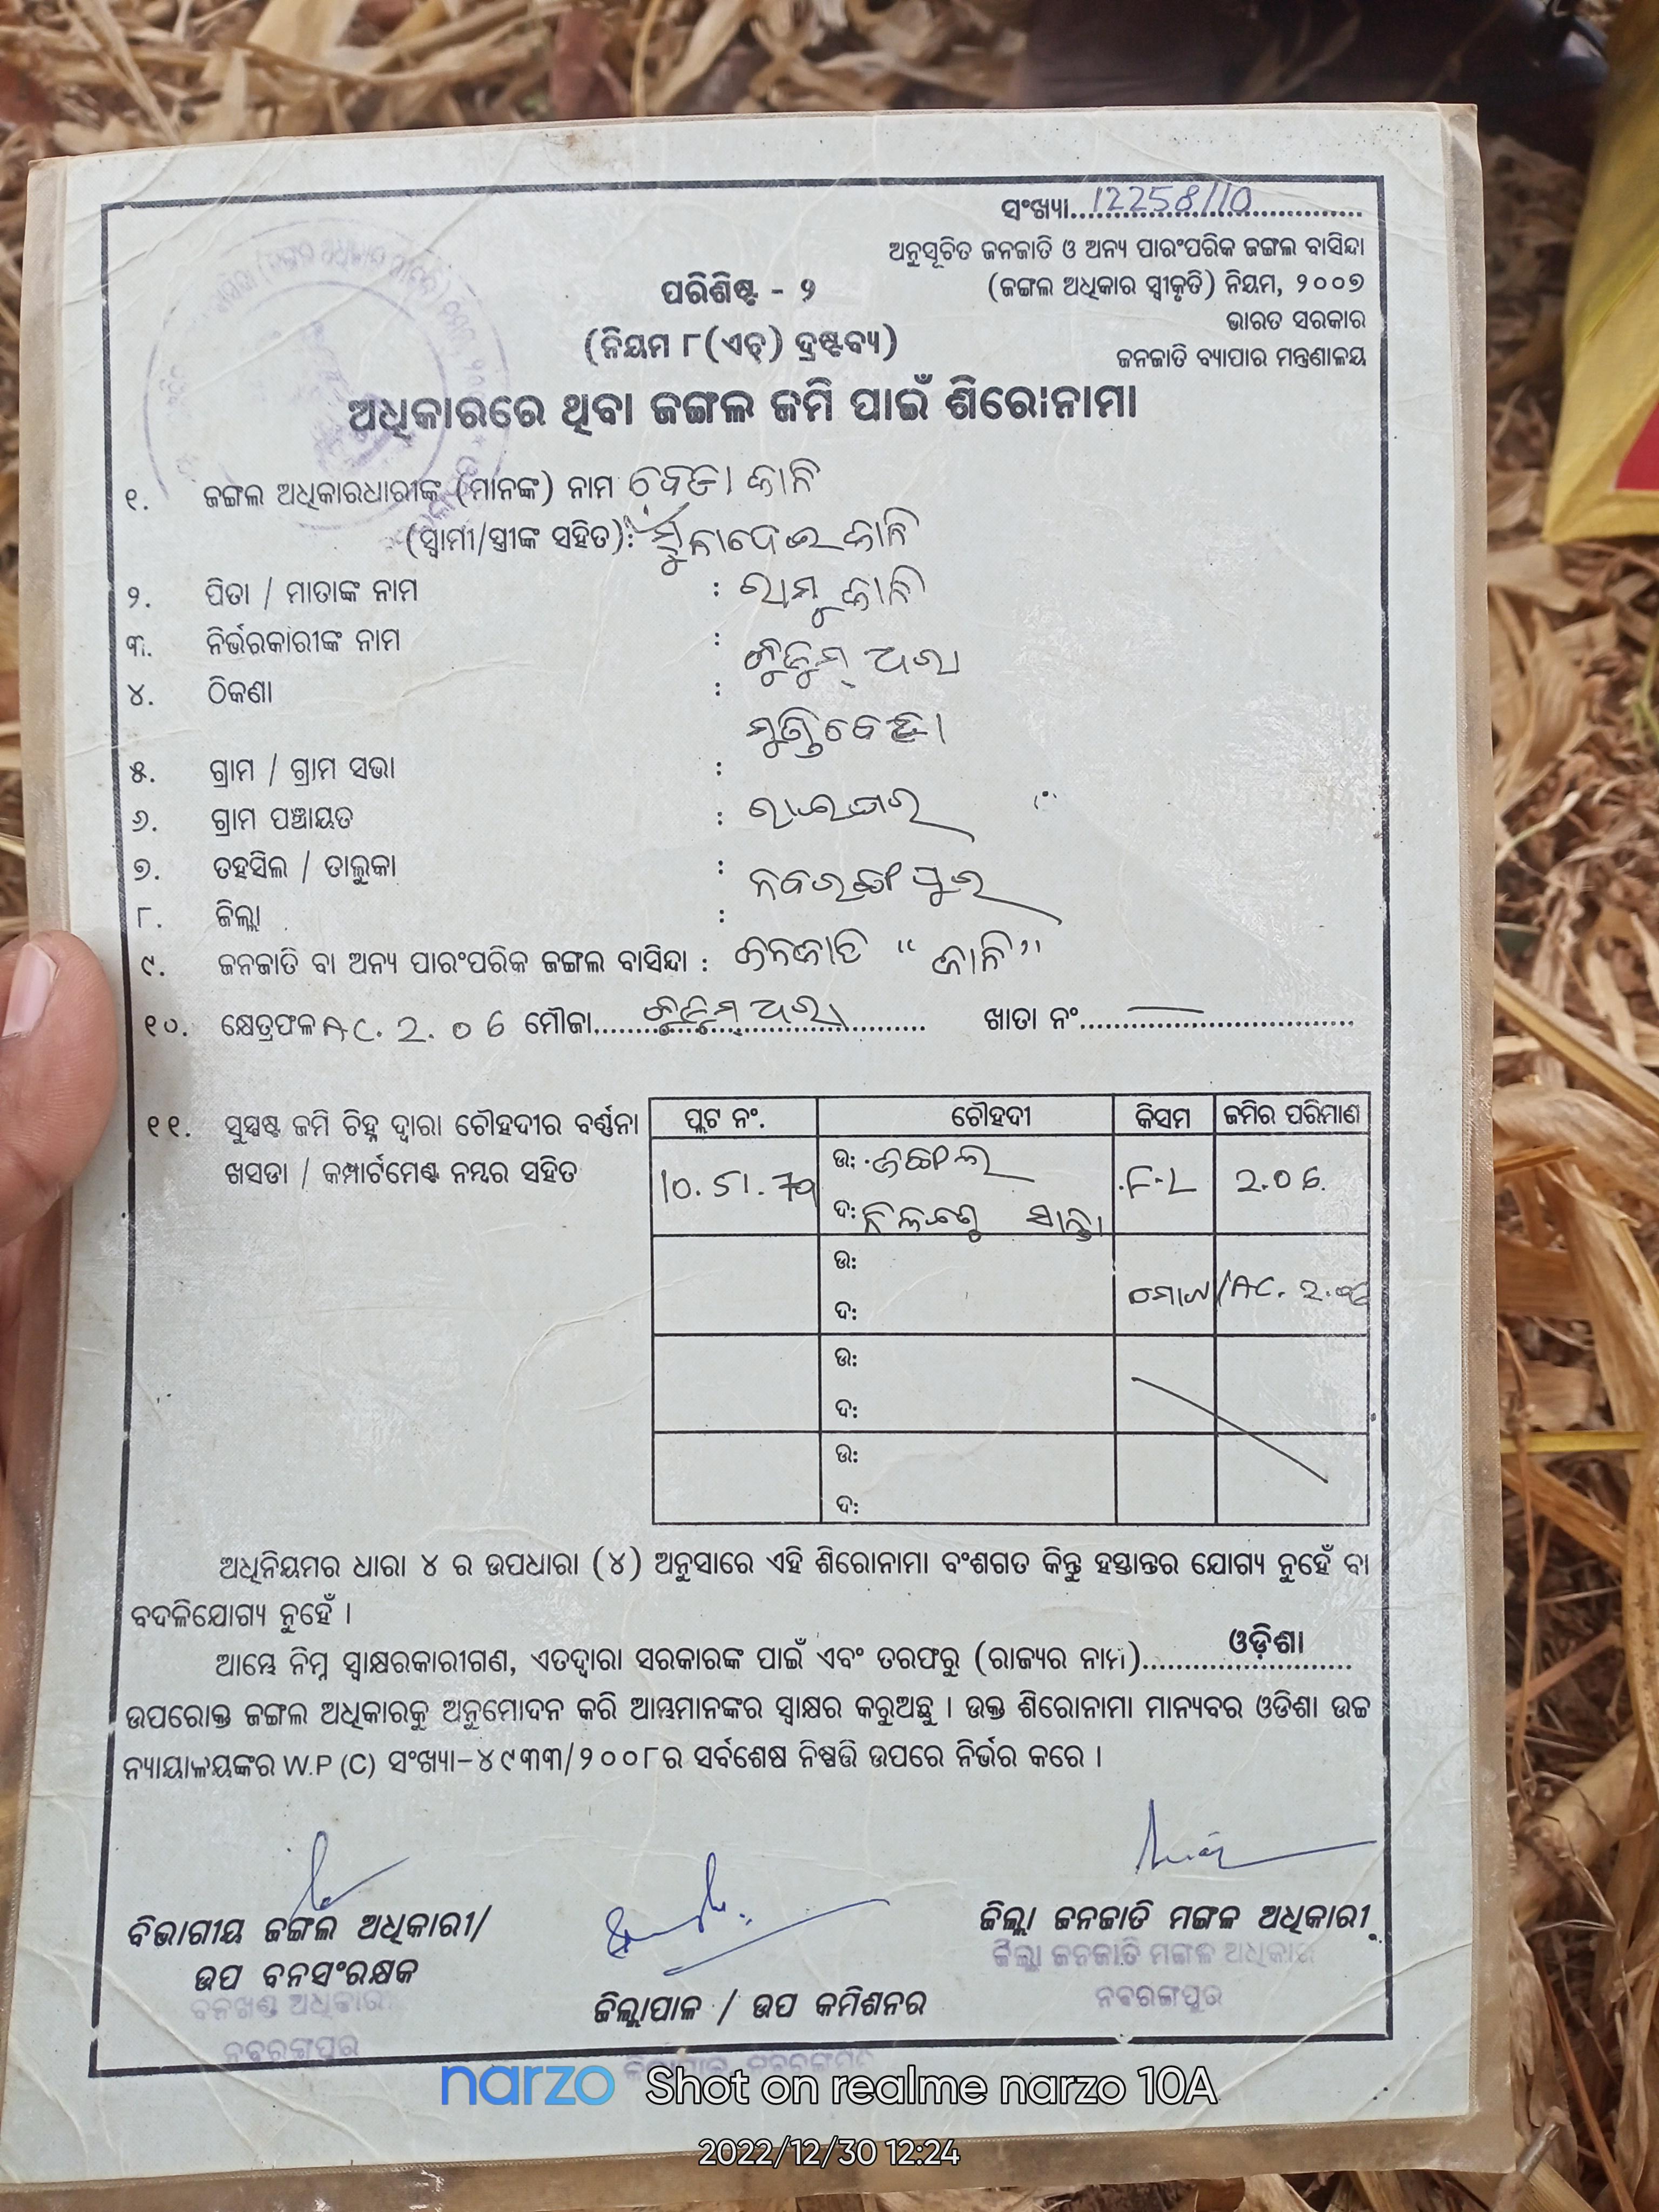 ସଂଖ୍ୟା....12258/10....
ଅନୁସୂଚିତ ଜନଜାତି ଓ ଅନ୍ୟ ପାରଂପରିକ ଜଙ୍ଗଲ ବାସିନ୍ଦା
(ଜଙ୍ଗଲ ଅଧିକାର ସ୍ୱୀକୃତି) ନିୟମ, ୨୦୦୭
ଭାରତ ସରକାର
ଜନଜାତି ବ୍ୟାପାର ମନ୍ତ୍ରଣାଳୟ
ପରିଶିଷ୍ଟ - ୨
(ନିୟମ ୮(ଏଚ୍) ଦ୍ରଷ୍ଟବ୍ୟ)
ଅଧିକାରରେ ଥିବା ଜଙ୍ଗଲ ଜମି ପାଇଁ ଶିରୋନାମା
୧. ଜଙ୍ଗଲ ଅଧିକାରଧାରୀଙ୍କୁ (ମାନଙ୍କ) ନାମ ଜାନି
(ସ୍ୱାମୀ/ସ୍ତ୍ରୀଙ୍କ ସହିତ): ଜାନି
୨. ପିତା / ମାତାଙ୍କ ନାମ : ରାମୁ ଜାନି
୩. ନିର୍ଭରକାରୀଙ୍କ ନାମ :
୪. ଠିକଣା :
୫. ଗ୍ରାମ / ଗ୍ରାମ ସଭା :
୬. ଗ୍ରାମ ପଞ୍ଚାୟତ :
ରାଇଘର
୭. ତହସିଲ / ତାଲୁକା :
ନବରଙ୍ଗପୁର
୮. ଜିଲ୍ଲା :
୯. ଜନଜାତି ବା ଅନ୍ୟ ପାରଂପରିକ ଜଙ୍ଗଲ ବାସିନ୍ଦା : ଜନଜାତି “ଜାନି”
୧୦. କ୍ଷେତ୍ରଫଳ AC. 2. 06 ମୌଜା.... ଖାତା ନଂ....
୧୧. ସୁସ୍ପଷ୍ଟ ଜମି ଚିହ୍ନ ଦ୍ୱାରା ଚୌହଦୀର ବର୍ଣ୍ଣନା
ଖସଡା / କମ୍ପାର୍ଟମେଣ୍ଟ ନମ୍ବର ସହିତ
ପ୍ଲଟ ନଂ. ଚୌହଦୀ କିସମ ଜମିର ପରିମାଣ
ଉ: ଜଙ୍ଗଲ F.L 2.06
ଦ:
ଉ:
ମୋଟ/AC. 2.
ଦ:
ଉ:
ଦ:
ଉ:
ଦ:
ଅଧିନିୟମର ଧାରା ୪ ର ଉପଧାରା (୪) ଅନୁସାରେ ଏହି ଶିରୋନାମା ବଂଶଗତ କିନ୍ତୁ ହସ୍ତାନ୍ତର ଯୋଗ୍ୟ ନୁହେଁ ବା
ବଦଳିଯୋଗ୍ୟ ନୁହେଁ ।
ଆମ୍ଭେ ନିମ୍ନ ସ୍ୱାକ୍ଷରକାରୀଗଣ, ଏତଦ୍ୱାରା ସରକାରଙ୍କ ପାଇଁ ଏବଂ ତରଫରୁ (ରାଜ୍ୟର ନାମ)....ଓଡ଼ିଶା....
ଉପରୋକ୍ତ ଜଙ୍ଗଲ ଅଧିକାରକୁ ଅନୁମୋଦନ କରି ଆମ୍ଭମାନଙ୍କର ସ୍ୱାକ୍ଷର କରୁଅଛୁ । ଉକ୍ତ ଶିରୋନାମା ମାନ୍ୟବର ଓଡିଶା ଉଚ୍ଚ
ନ୍ୟାୟାଳୟଙ୍କର W.P (C) ସଂଖ୍ୟା-୪୯୩୩/୨୦୦୮ର ସର୍ବଶେଷ ନିଷ୍ପତ୍ତି ଉପରେ ନିର୍ଭର କରେ ।
ବିଭାଗୀୟ ଜଙ୍ଗଲ ଅଧିକାରୀ/
ଉପ ବନସଂରକ୍ଷକ
ବନଖଣ୍ଡ ଅଧିକାରୀ
ନବରଙ୍ଗପୁର
ଜିଲ୍ଲାପାଳ / ଉପ କମିଶନର
ଜିଲ୍ଲା ଜନଜାତି ମଙ୍ଗଳ ଅଧିକାରୀ
ଜିଲ୍ଲା ଜନଜାତି ମଙ୍ଗଳ ଅଧିକାରୀ
ନବରଙ୍ଗପୁର
ଜିଲ୍ଲାପାଳ, ନବରଙ୍ଗପୁର
narzo Shot on realme narzo 10A
2022/12/30 12:24